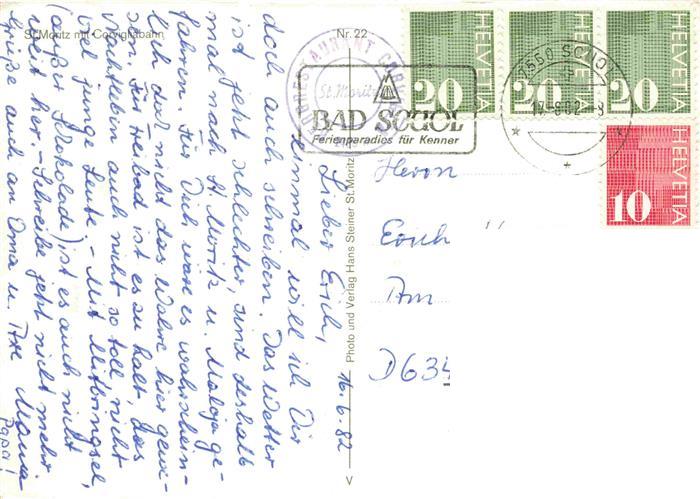 St. Moritz mit Corvigliabahn
Nr. 22
St. Moritz
BAD SCUOL
Ferienparadies für Kenner
7550 SCUOL
HELVETIA 20
HELVETIA 20
HELVETIA 20
HELVETIA 10
Photo und Verlag Hans Steiner St. Moritz
V
16.6.82
Lieber Erich,
einmal will ich Dir
doch auch schreiben. Das Wetter
ist jetzt schlechter, sind deshalb
mal nach St. Moritz u. Maloja ge-
fahren. Für Dich wäre es wahrschein-
lich auch nicht das Wahre hier gewe-
sen. Für Freibad ist es zu kalt, das
Nachtleben auch nicht so toll, nicht
viel junge Leute. - Mit Mitbringsel,
(außer Schokolade) ist es auch nicht
weit her. - Schreibe jetzt nicht mehr.
Grüße auch an Oma u. Ave Mama
Papa!
Herrn
Erich
Am
D634